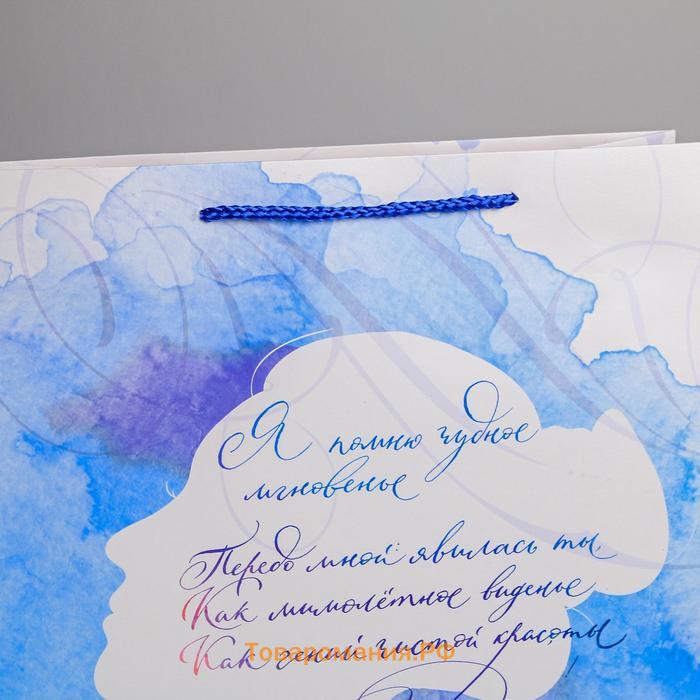 Я помню чудное
мгновенье
Передо мной явилась ты,
Как мимолётное виденье
Как гений чистой красоты
!
Товаромания.РФ